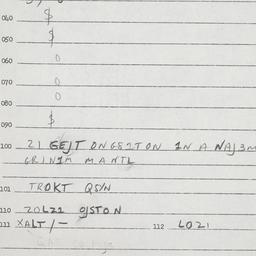 040 $
050 $
060 0
070 0
080 0
090 $
100 21 GEJT ONGS2TON IN A NAJ3M
GRINIM MANTL
101 TROKT QS/N
110 20L21 OJSTON
111 XALT /- 112 LOZI